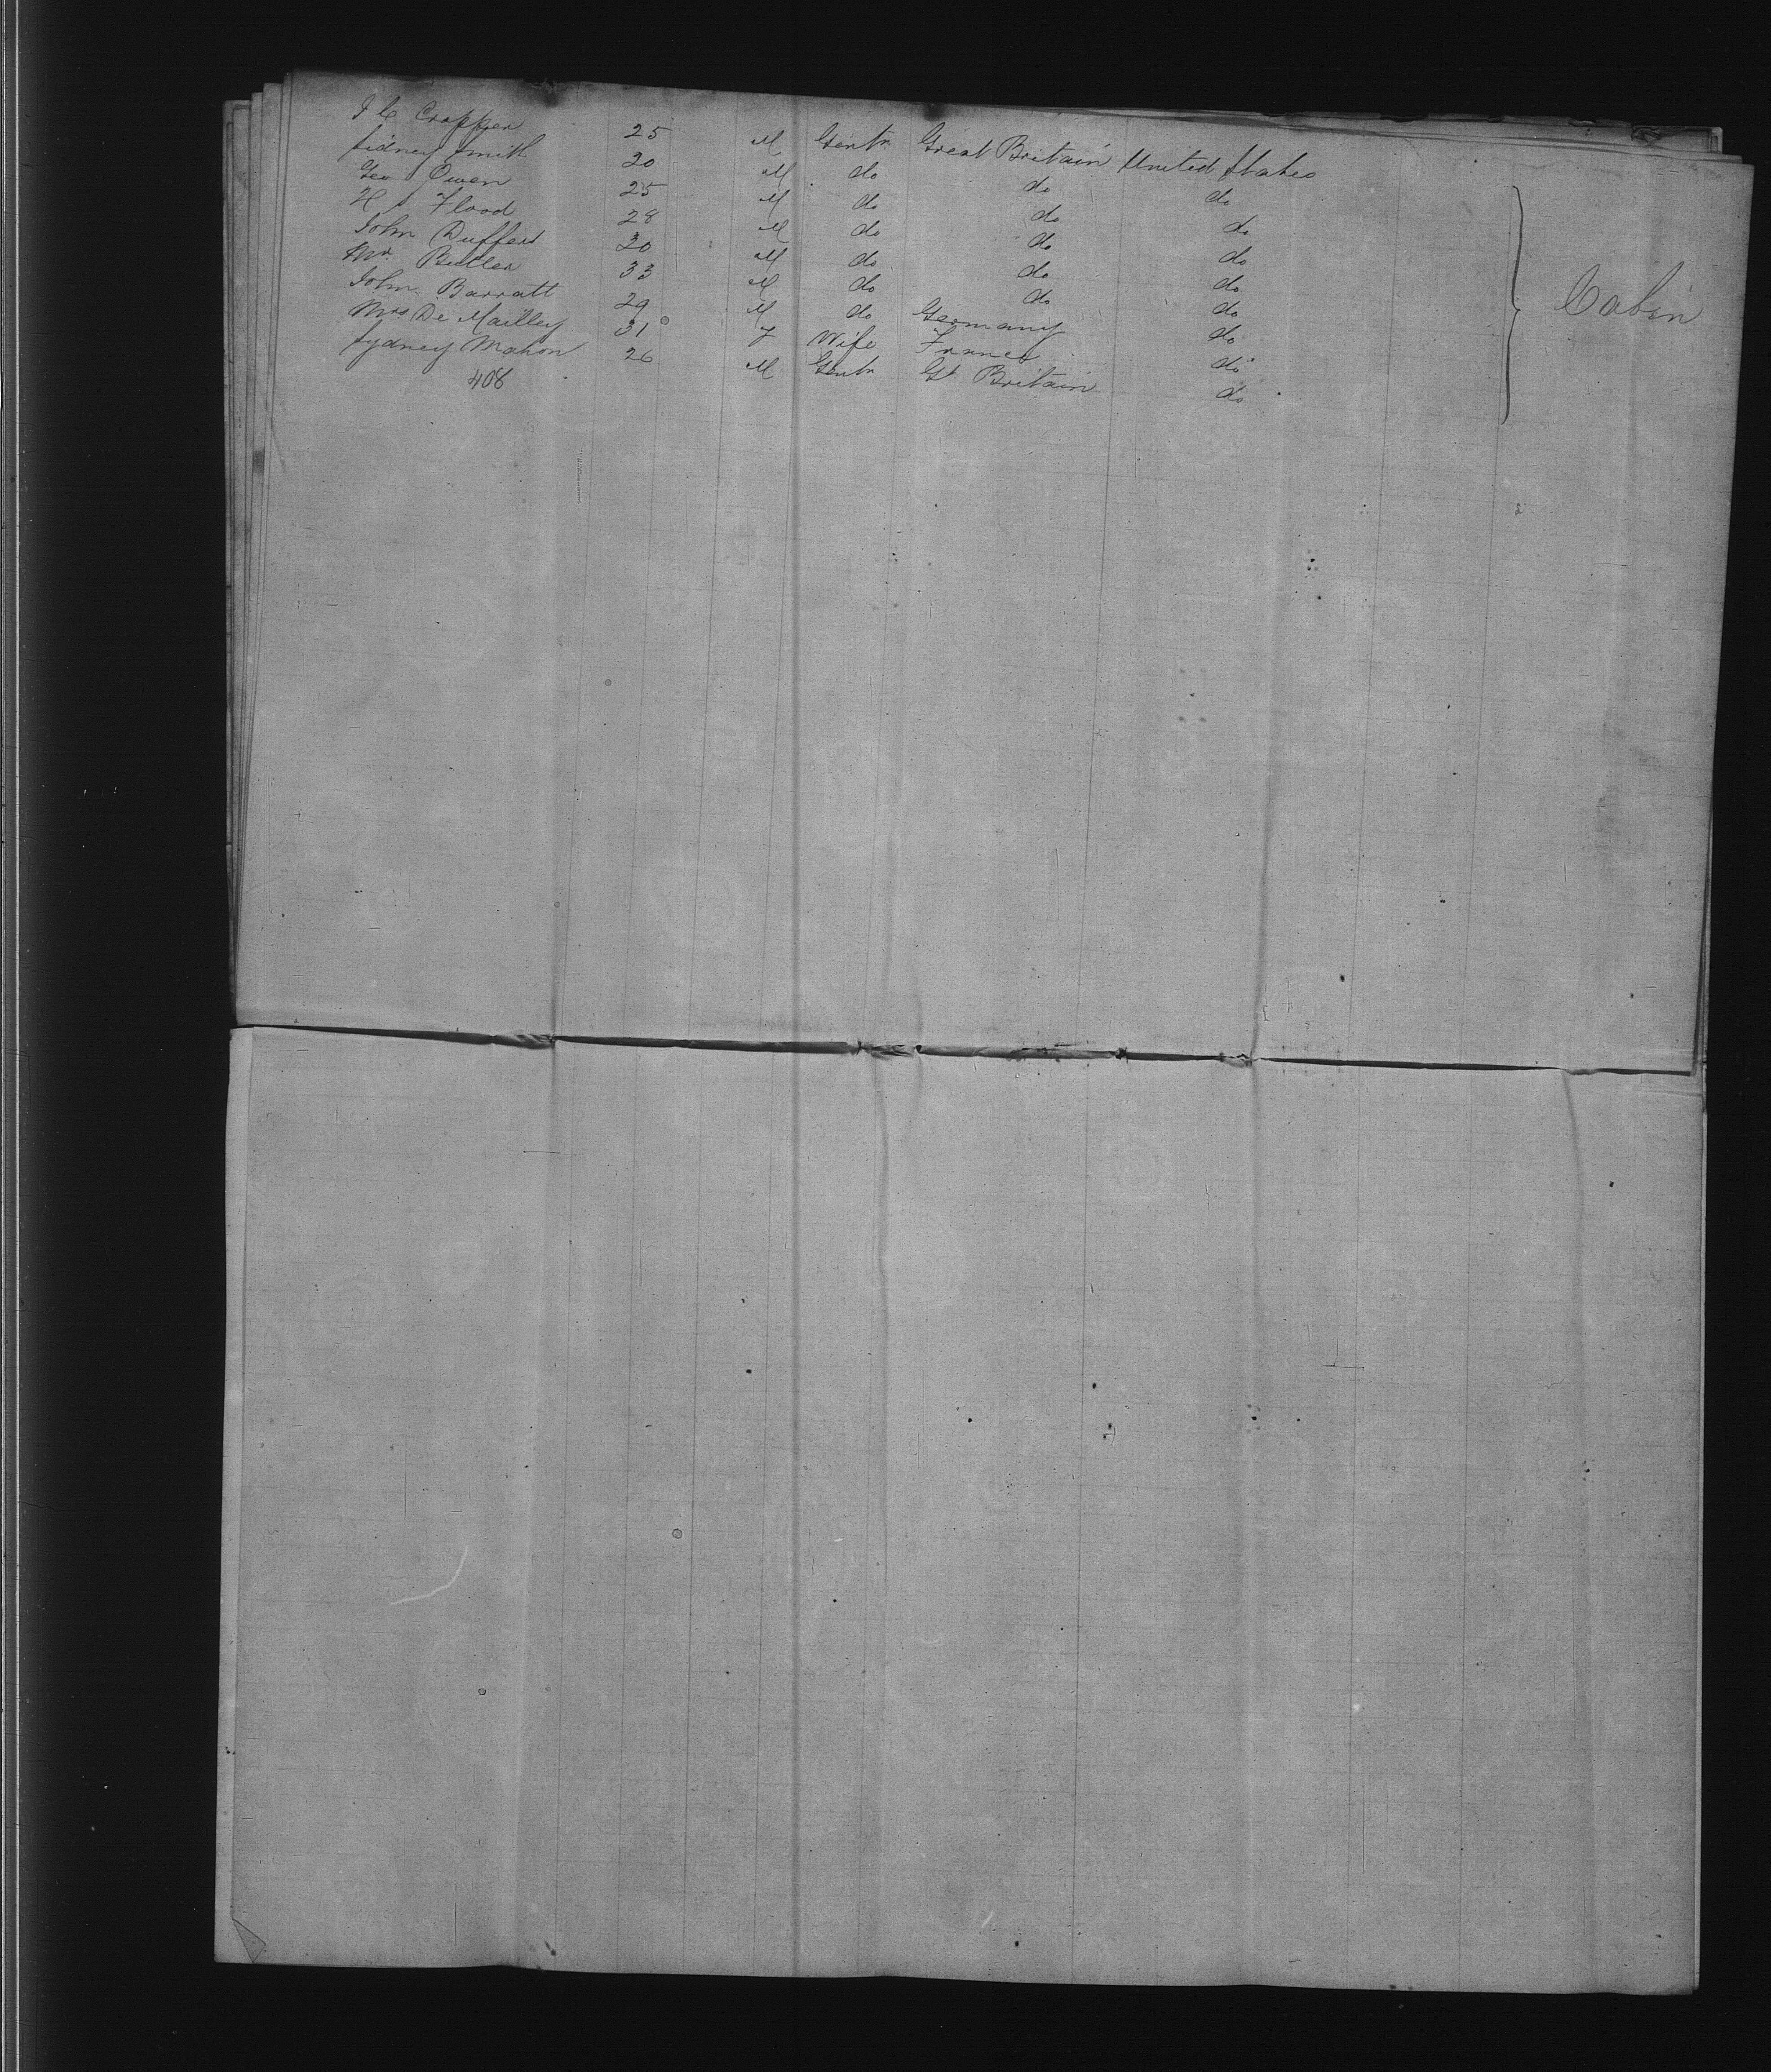 J C Cropper 25 M Gentn Great Britain United States
Sidney Smith 20 M do do do
Geo Owen 25 M do do do
H S Flood 28 M do do do
John Duffers 30 M do do do
Mr Butler 33 M do do do
John Barratt 29 M do Germany do
Mrs De Mailley 31 F Wife France do
Sydney Mahon 26 M Gentn Gt Britain do
408
Cabin